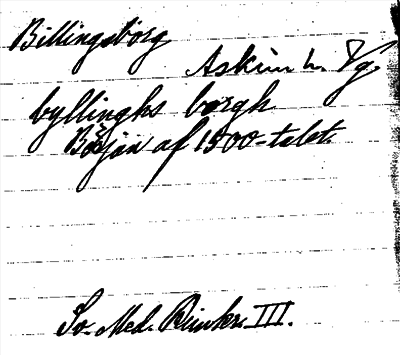 Billingsborg
Askim h. Vg.
byllinghs borgh
Början af 1500-talet.
Sv. Med. Rimkr. III.